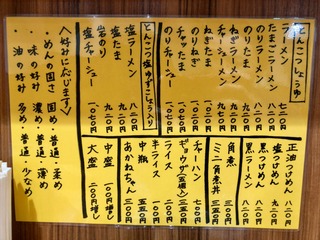 とんこつしょうゆ
ラーメン 七二〇円
たまごラーメン 八二〇円
のりラーメン 八二〇円
のりたま 九二〇円
ねぎラーメン
チャーシューメン
ねぎたま
のりねぎ
チャーたま
のりチャーシュー
とんこつ塩ゆずこしょう入り
塩ラーメン 八二〇円
塩たま 九二〇円
岩のり 九二〇円
塩チャーシュー 一、〇七〇円
正油つけめん 八二〇円
塩つけめん 九二〇円
黒つけめん 八二〇円
黒ラーメン 八二〇円
角煮 三〇〇円
ミニ角煮丼 三五〇円
チャーハン
ギョウザ(五個) 三〇〇円
ライス
半ライス
中瓶 五五〇円
あかねちゃん 三〇〇円
中盛 一〇〇円増し
大盛 二〇〇円増し
〈好みに応じます〉
・めんの固さ 固め・普通・柔め
・味の好み 濃め・普通・薄め
・油の好み 多め・普通・少なめ